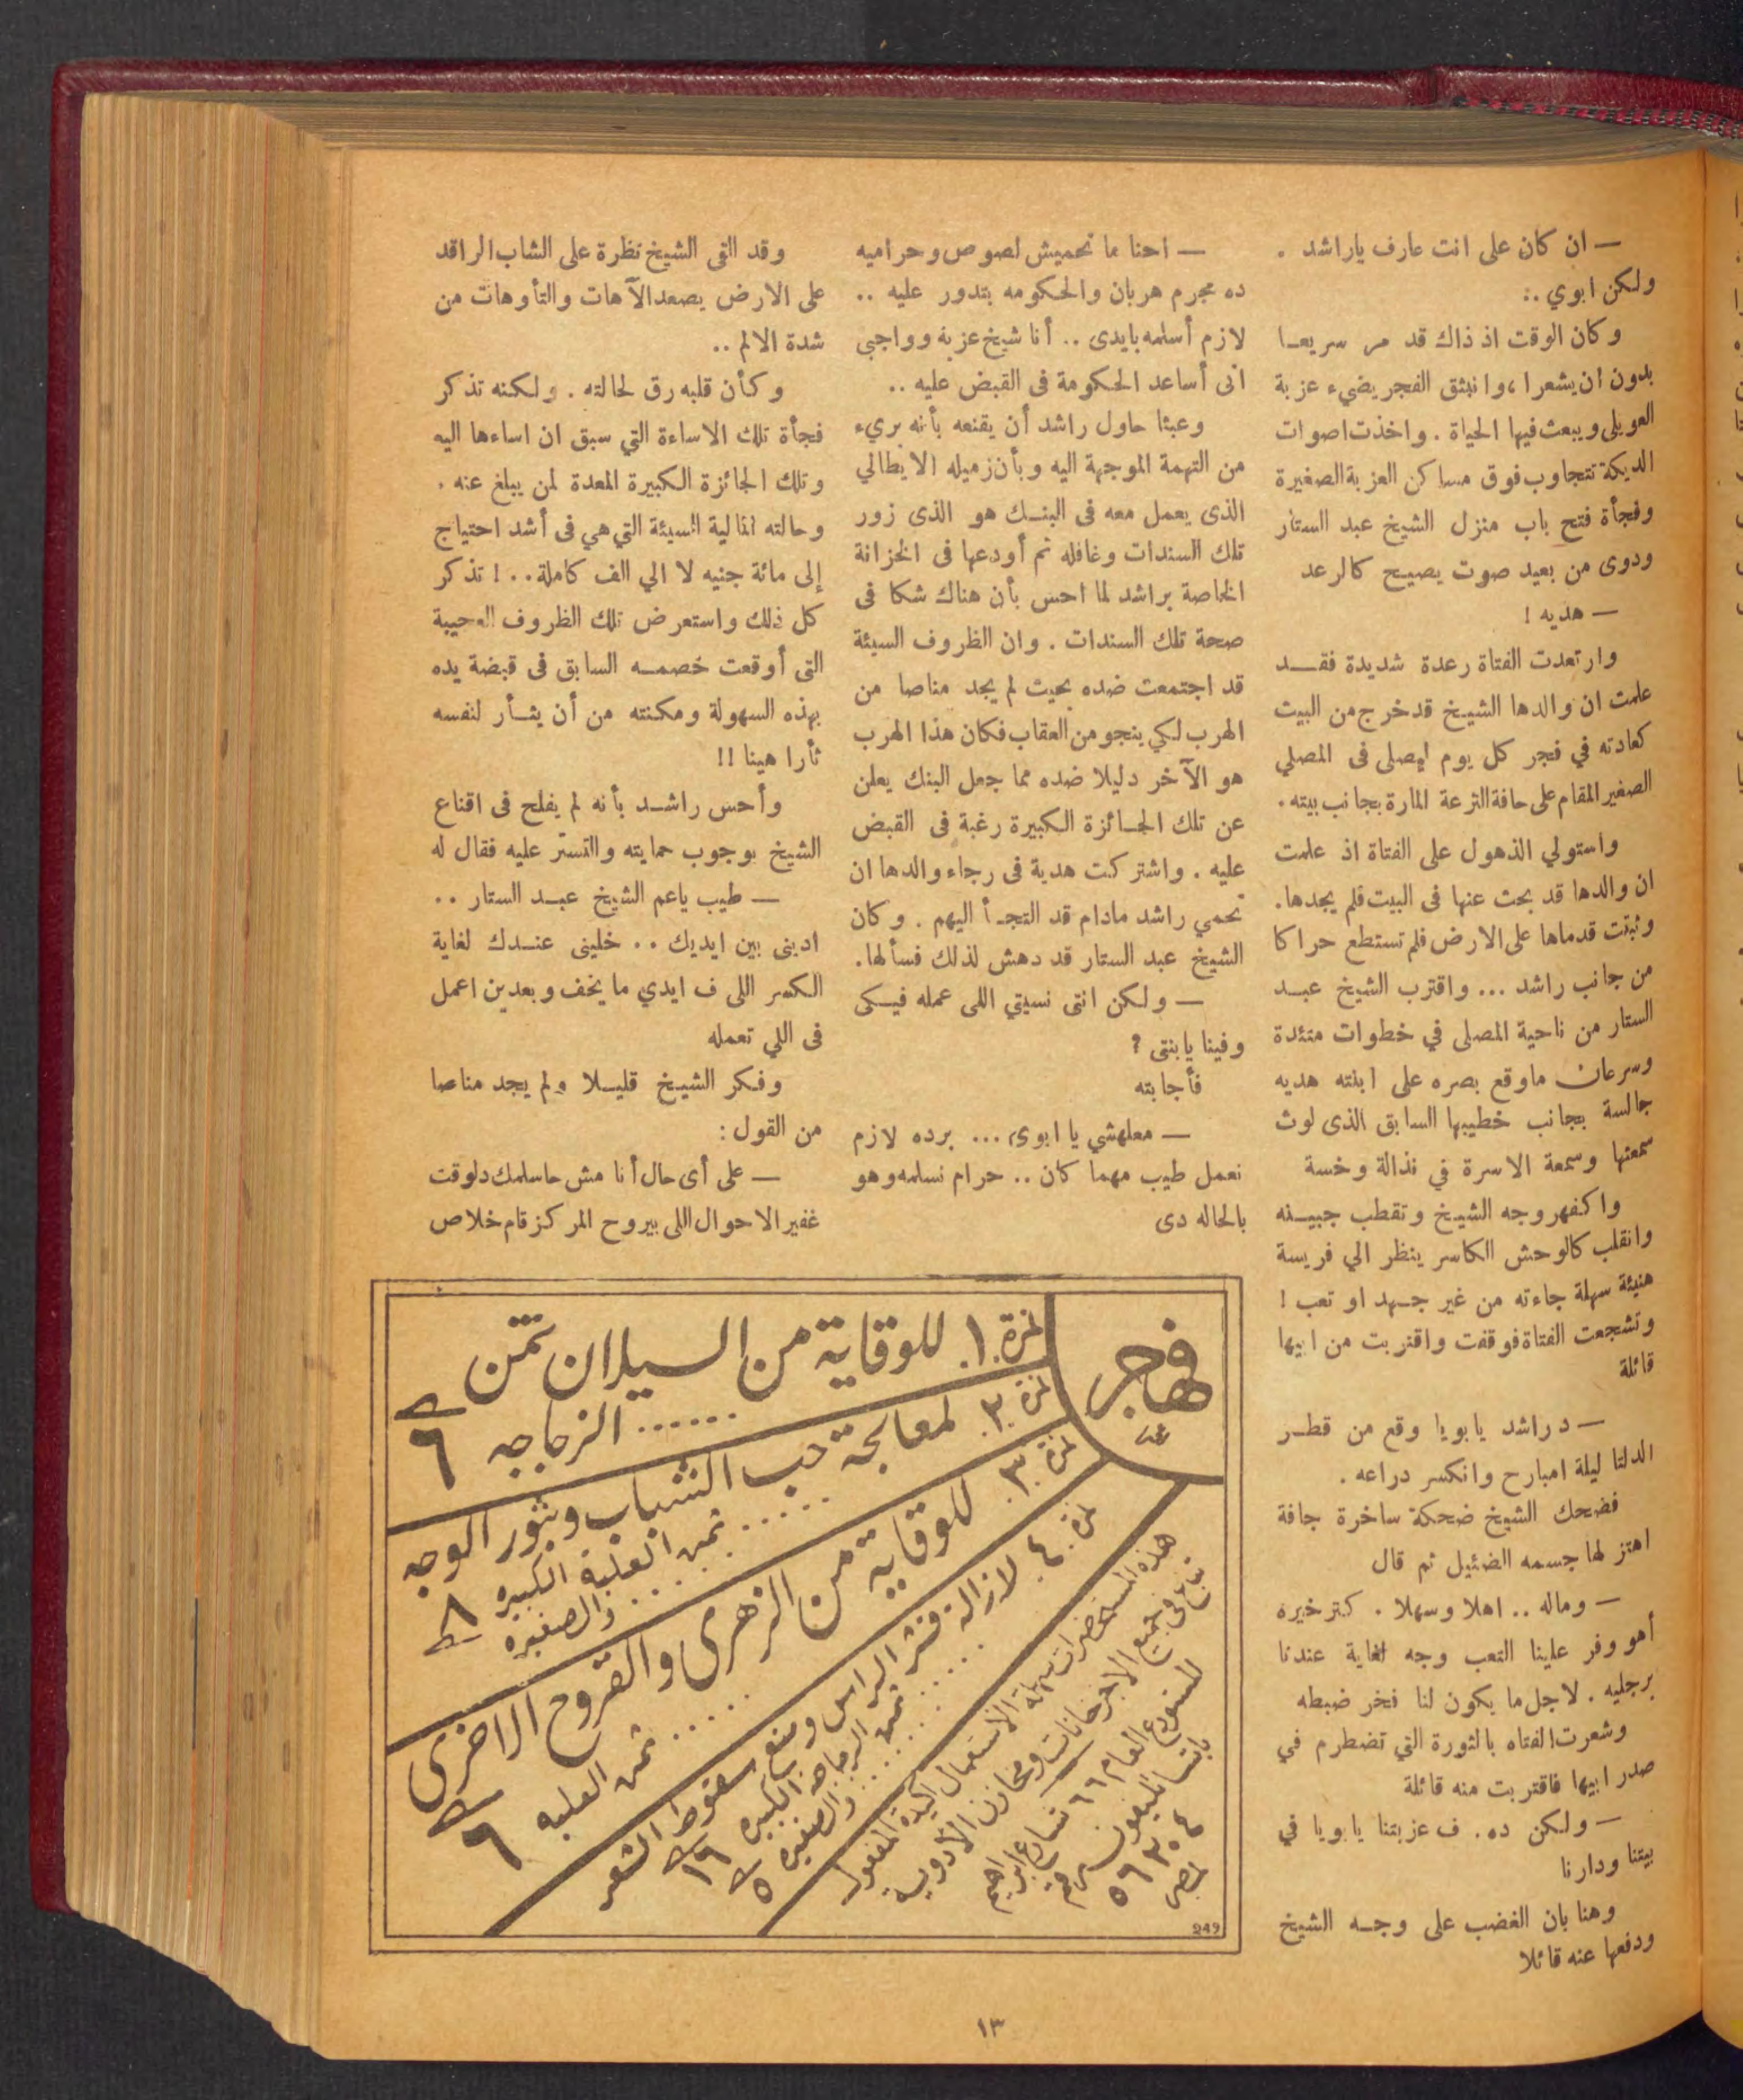 — ان كان على انت عارف ياراشد .
ولكن ابوي ..
وكان الوقت اذ ذاك قد مر سريعـا
بدون ان يشعرا ، وانبثق الفجر يضيء عزبة
العويلى ويبعث فيها الحياة . واخذت اصوات
الديكة تتجاوب فوق مساكن العزبة الصغيرة
وفجأة فتح باب منزل الشيخ عبد الستار
ودوى من بعيد صوت يصيح كالرعد
— هديه !
وارتعدت الفتاة رعدة شديدة فقـــد
علمت ان والدها الشيخ قد خرج من البيت
كعادته في فجر كل يوم ليصلى فى المصلي
الصغير المقام على حافة الترعة المارة بجانب بيته .
واستولي الذهول على الفتاة اذ علمت
ان والدها قد بحث عنها فى البيت فلم يجدها .
وثبتت قدماها على الارض فلم تستطع حراكا
من جانب راشد ... واقترب الشيخ عبـد
الستار من ناحية المصلى في خطوات متئدة
وسرعان ماوقع بصره على ابنته هديه
جالسة بجانب خطيبها السابق الذى لوث
سمعتها وسمعة الاسرة في نذالة وخسة
واكفهر وجه الشيخ وتقطب جبيـنه
وانقلب كالوحش الكاسر ينظر الي فريسة
هنيئة سهلة جاءته من غير جـهد او تعب !
وتشجعت الفتاة فوقفت واقتربت من ابيها
قائلة
— دراشد يابويا وقع من قطـر
الدلتا ليلة امبارح وانكسر دراعه .
فضحك الشيخ ضحكة ساخرة جافة
اهتز لها جسمه الضئيل ثم قال
— وماله .. اهلا وسهلا . كتر خيره
أهو وفر علينا التعب وجه لغاية عندنا
برجليه . لاجل ما يكون لنا فخر ضبطه
وشعرت الفتاه بالثورة التي تضطرم في
صدر ابيها فاقتربت منه قائلة
— ولكن ده . ف عزبتنا يابويا في
بيتنا ودارنا
وهنا بان الغضب على وجـه الشيخ
ودفعها عنه قائلا
— احنا ما نحميش لصوص وحراميه
ده مجرم هربان والحكومه بتدور عليه ..
لازم أسلمه بايدى .. أنا شيخ عزبة وواجبى
انى أساعد الحكومة فى القبض عليه ..
وعبثا حاول راشد أن يقنعه بأنه برىء
من التهمة الموجهة اليه وبأن زميله الايطالي
الذى يعمل معه فى البنـك هو الذى زور
تلك السندات وغافله ثم أودعها فى الخزانة
الخاصة براشد لما احس بأن هناك شكا فى
صحة تلك السندات . وان الظروف السيئة
قد اجتمعت ضده بحيث لم يجد مناصا من
الهرب لكي ينجو من العقاب فكان هذا الهرب
هو الآخر دليلا ضده مما جعل البنك يعلن
عن تلك الجـائزة الكبيرة رغبة فى القبض
عليه . واشتركت هدية فى رجاء والدها ان
تحمي راشد مادام قد التجـأ اليهم . وكان
الشيخ عبد الستار قد دهش لذلك فسألها .
— ولكن انتى نسيتي اللى عمله فيـكى
وفينا يابنتى ؟
فأجابته
— معلهشي يا ابوى ... برده لازم
نعمل طيب مهما كان .. حرام نسلمه وهو
بالحاله دى
وقد القى الشيخ نظرة على الشاب الراقد
على الارض يصعد الآهات والتأوهات من
شدة الالم ..
وكأن قلبه رق لحالته . ولكنه تذكر
فجأة تلك الاساءة التي سبق ان اساءها اليه
وتلك الجائزة الكبيرة المعدة لمن يبلغ عنه .
وحالته المالية السيئة التي هي فى أشد احتياج
إلى مائة جنيه لا الي الف كاملة .. ! تذكر
كل ذلك واستعرض تلك الظروف العجيبة
التى أوقعت خصمـه السابق فى قبضة يده
بهذه السهولة ومكنته من أن يثـأر لنفسه
ثأرا هينا !!
وأحس راشـد بأنه لم يفلح فى اقناع
الشيخ بوجوب حمايته والتستر عليه فقال له
— طيب ياعم الشيخ عبـد الستار ..
ادينى بين ايديك .. خلينى عنـدك لغاية
الكسر اللى ف ايدي ما يخف وبعدين اعمل
فى اللي تعمله
وفكر الشيخ قليـلا ولم يجد مناصا
من القول :
— على أى حال أنا مش حاسلمك دلوقت
غفير الاحوال اللى بيروح المركز قام خلاص
هاجر
نمرة .١. للوقاية من السيلان ثمن
الزجاجه ...... ٦
نمرة .٢. لمعالجة حب الشباب وبثور الوجه
ثمن العلبة الكبيره ..... ٨
والصغيره ...
نمرة .٣. للوقاية من الزهرى والقروح الاخرى
ثمن العلبه ..... ٦
نمرة .٤. لازالة قشر الراس ومنع سقوط الشعر
ثمن الزجاجه الكبيره ..... ١٦
والصغيره ..... ٥
هذه المستحضرات سهلة الاستعمال اكيدة المفعول
تباع فى جميع الاجزخانات ومخازن الأدوية
المستودع العام ٦٦ شارع ابراهيم
باشا تليفون رقم
٥٦٣٠٤
بمصر
249
١٣